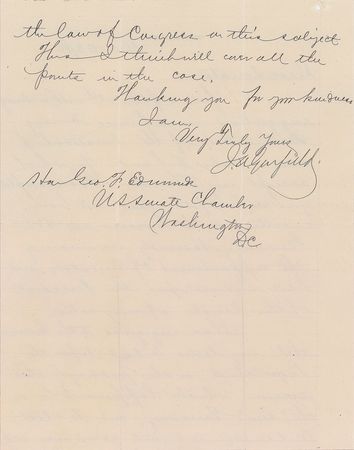 the law of Congress on this subject
This I think will cover all the
points in the case.
Thanking you for your kindness
I am
Very Truly Yours
J.A. Garfield.
Hon Geo. F. Edmunds
U.S. Senate Chamber
Washington
D.C.